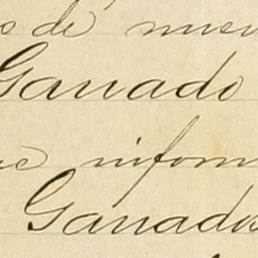 de nuev
Ganado
e inform
Ganados